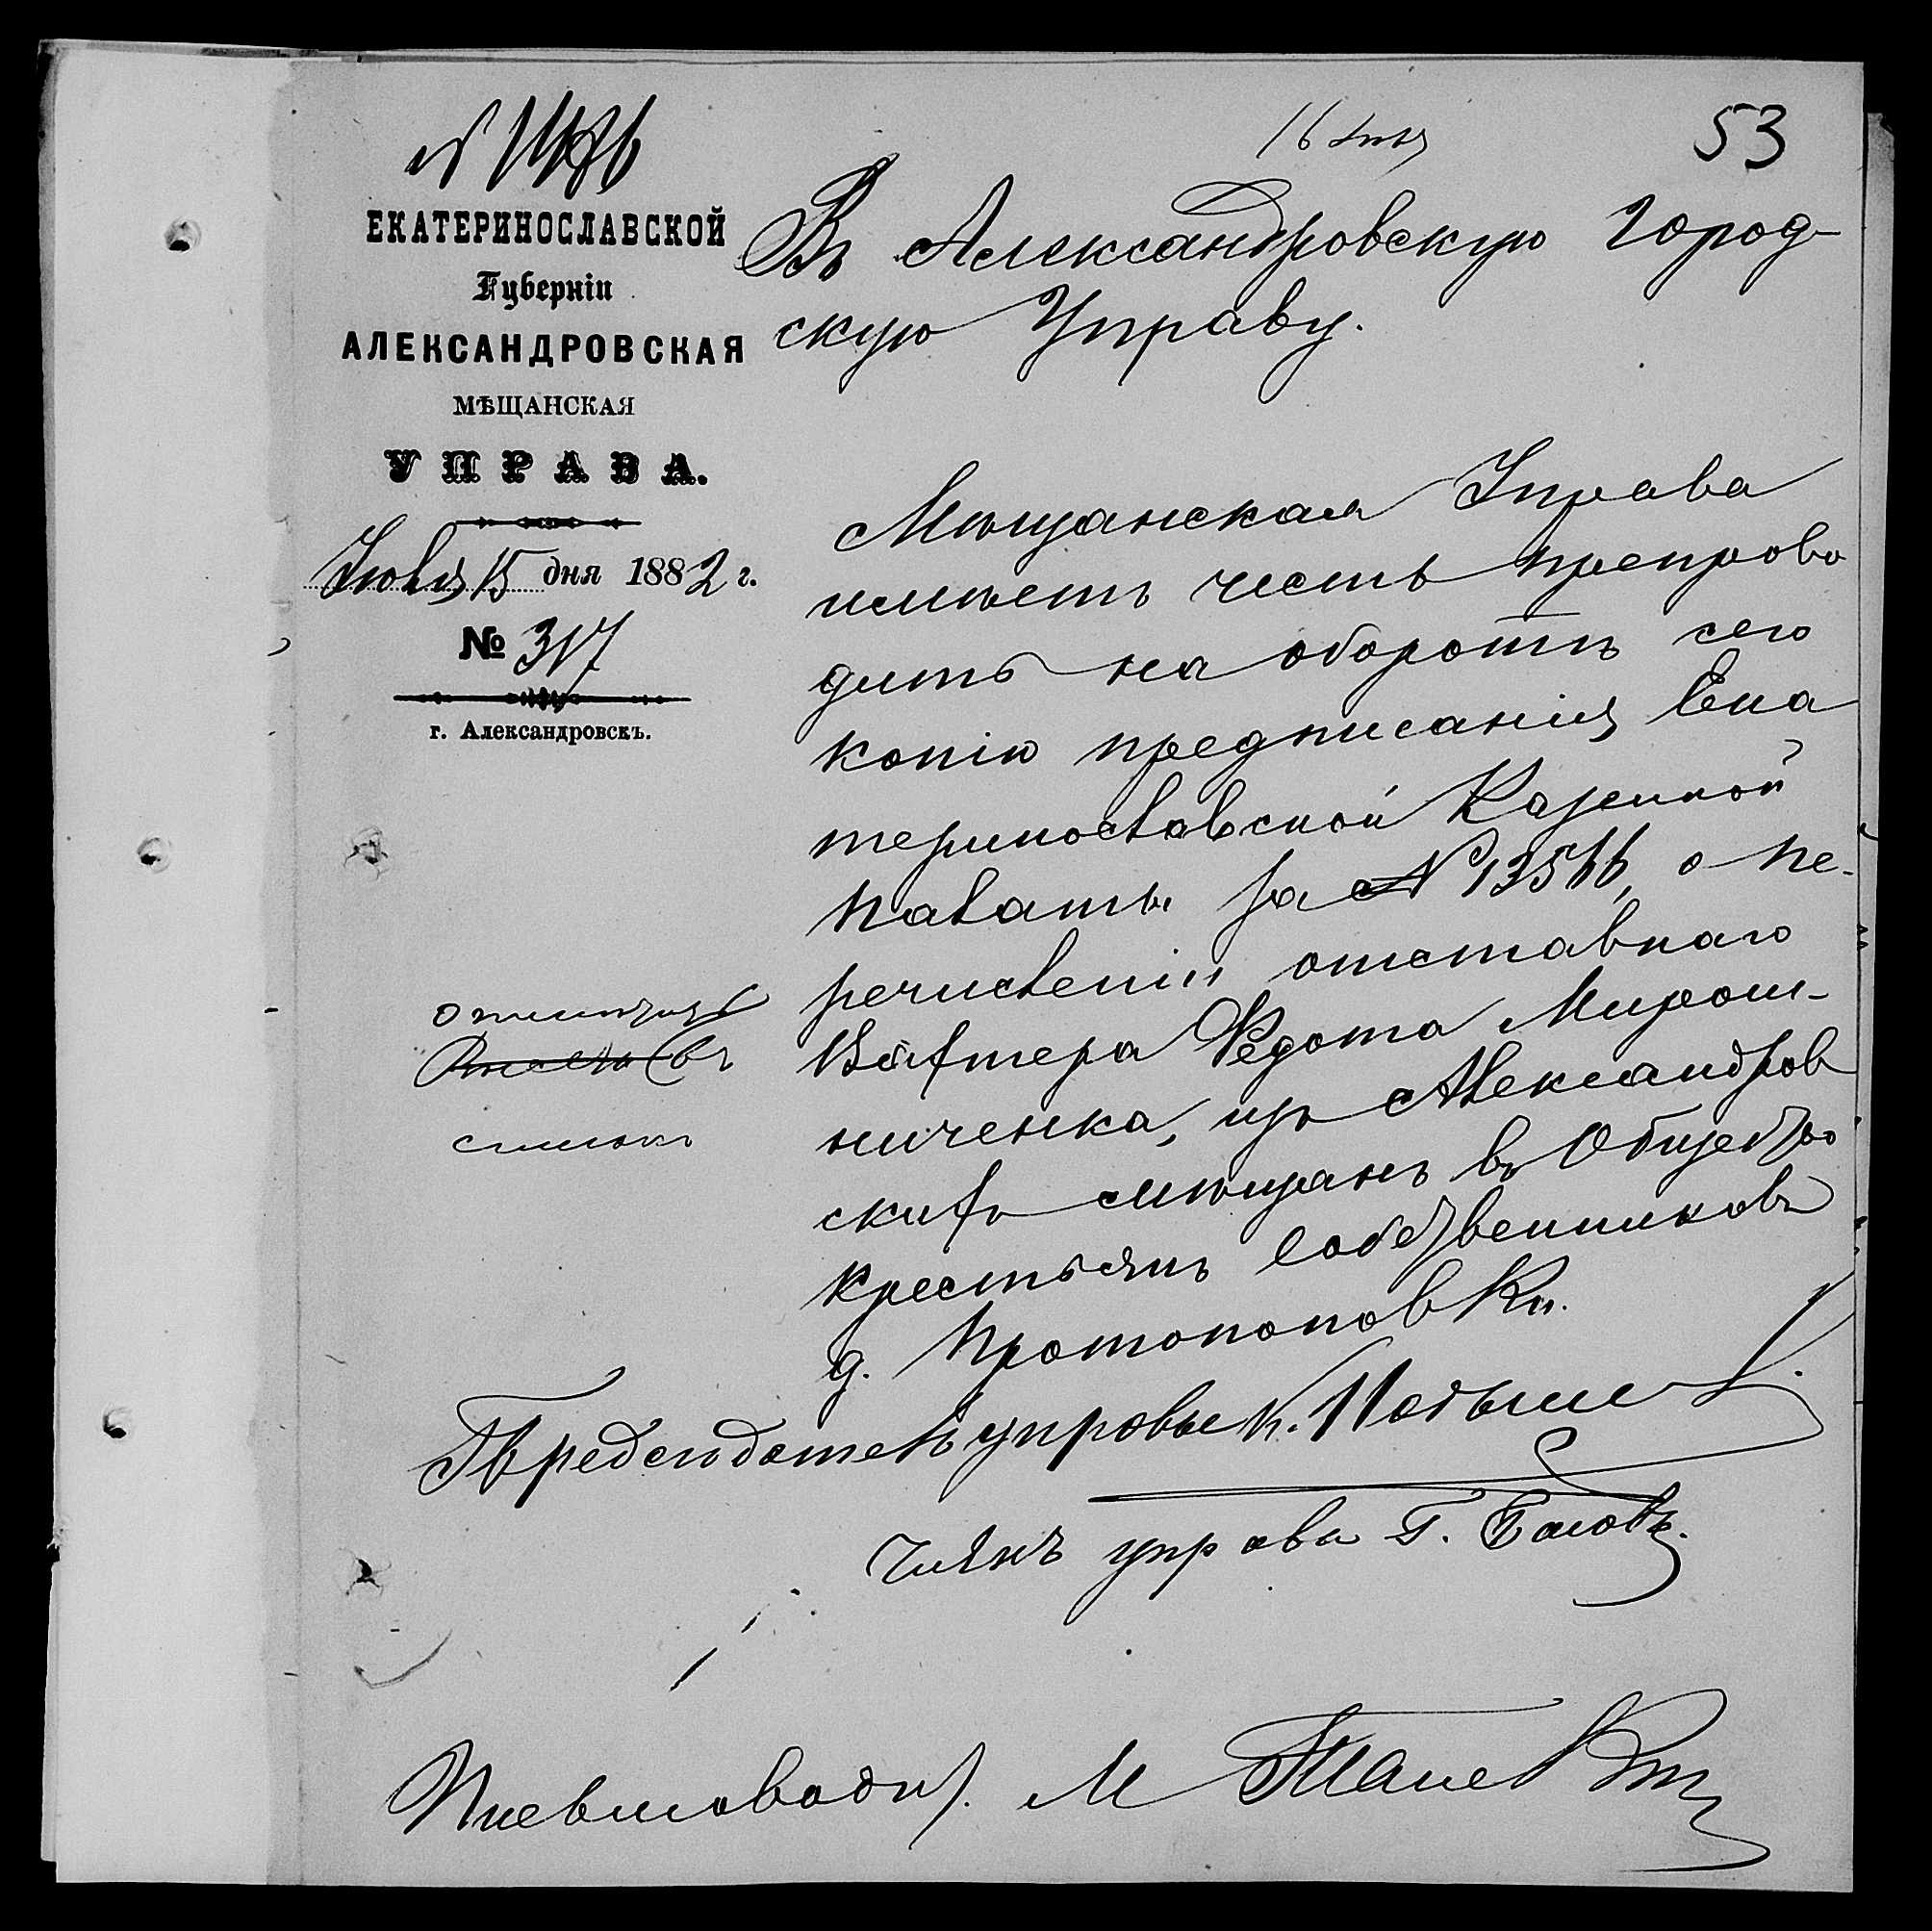 53
ЕКАТЕРИНОСЛАВСКОЙ
Губерніи
АЛЕКСАНДРОВСКАЯ
МѢЩАНСКАЯ
УПРАВА.
Іюля 15 дня 1882 г.
№ 317
г. Александровскъ.
Въ Александровскую Город-
скую Управу.
Мѣщанская Управа
имѣетъ честь препрово
дить на оборотѣ сего
копію предписанія Ека
теринославской Казенной
Палаты за № 13566, о пе-
речисленіи отставнаго
Вахтера Федота Мирош-
ниченка, изъ Александров
скихъ мѣщанъ въ Общество
крестьянъ собственниковъ
д. Протопоповки.
въ
спискѣ
Предсидатель управы К.
Членъ управы Г.
Письмоводит. М